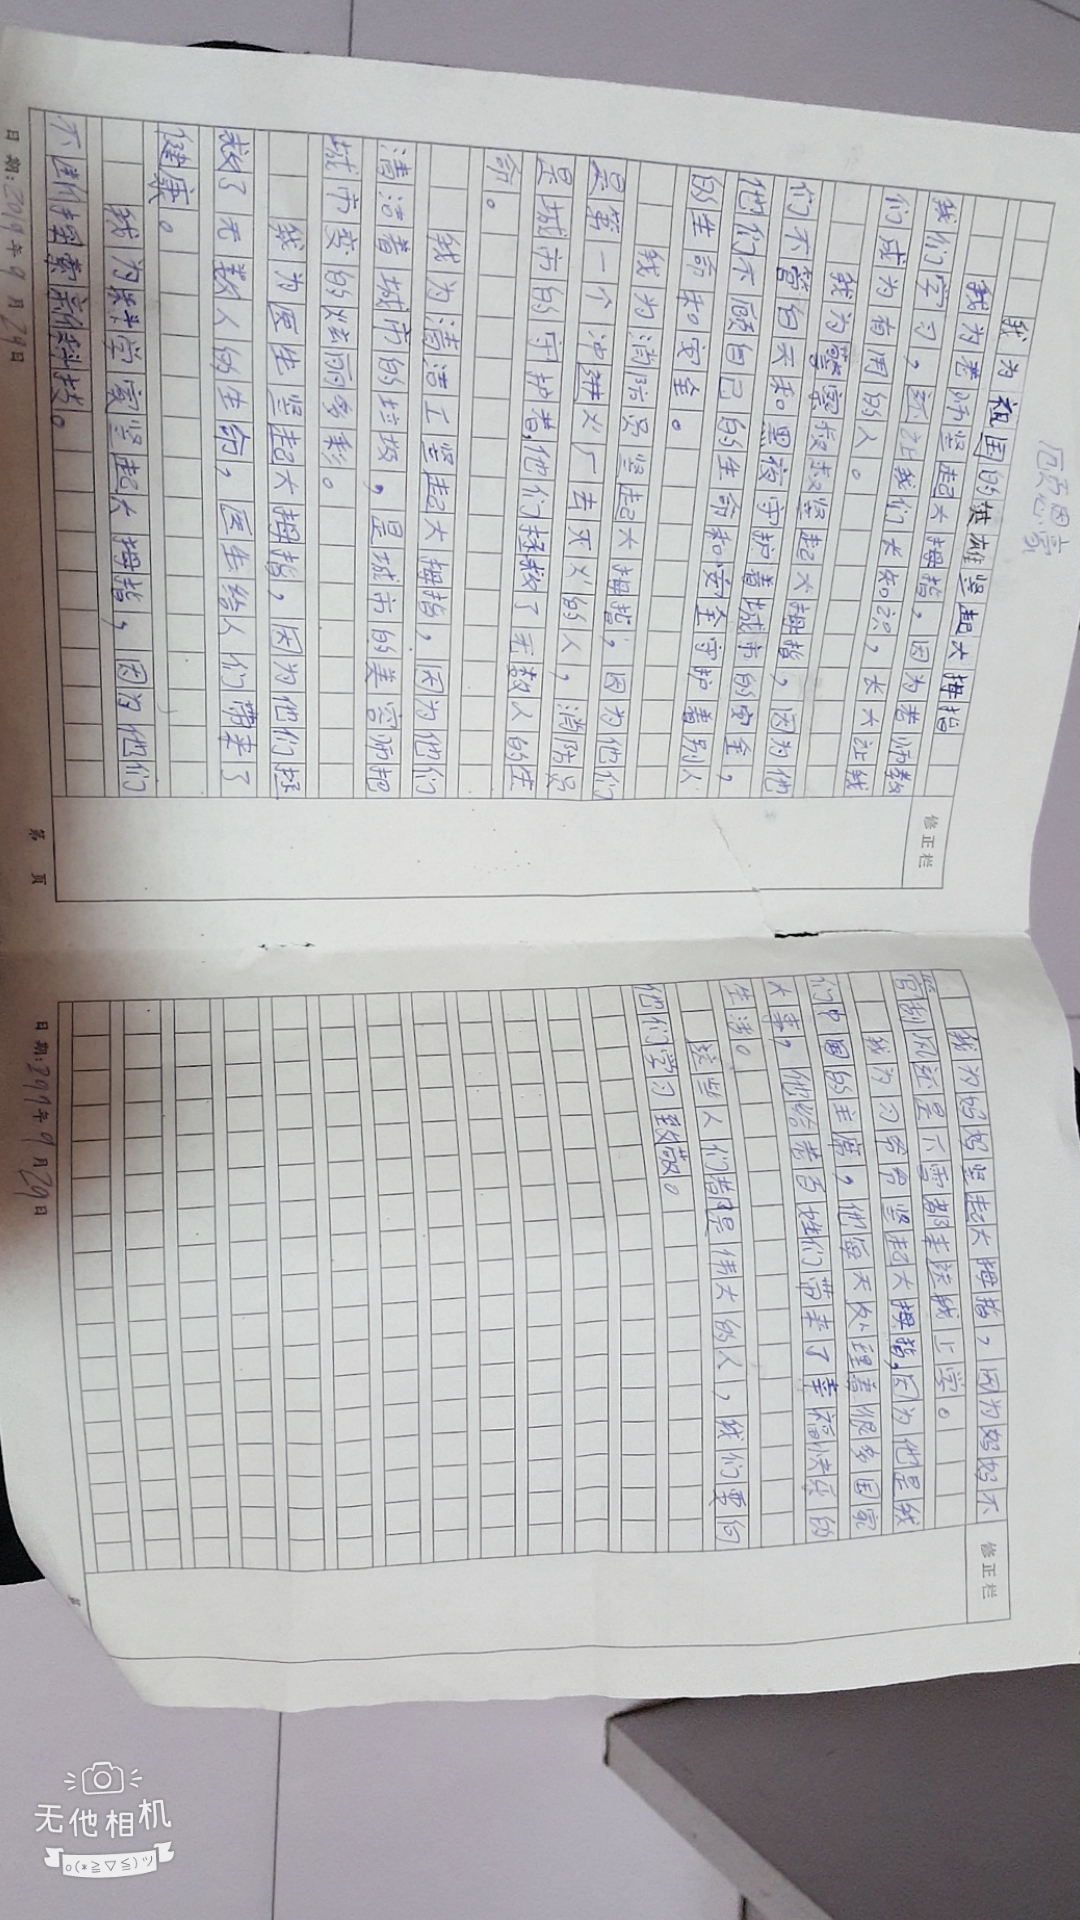 我为祖国的英雄竖起大拇指
我为老师竖起大拇指，因为老师教
我们学习，还让我们长知识，长大让我
们成为有用的人。
我为警察叔叔竖起大拇指，因为他
们不管白天和黑夜守护着城市的安全，
他们不顾自己的生命和安全守护着别人
的生命和安全。
我为消防员竖起大拇指，因为他们
是第一个冲进火厂去灭火的人，消防员
是城市的守护者，他们拯救了无数人的生
命。
我为清洁工竖起大拇指，因为他们
清洁着城市的垃圾，是城市的美容师把
城市变的炫丽多彩。
我为医生竖起大拇指，因为他们拯
救了无数人的生命，医生给人们带来了
健康。
我为科学家竖起大拇指，因为他们
不断探索新科技。
日期：2019年9月29日
第 页
修正栏
我为妈妈竖起大拇指，因为妈妈不
管刮风还是下雪都来送我上学。
我为习爷爷竖起大拇指，因为他是我
们中国的主席，他每天处理着很多国家
大事，他给老百姓们带来了幸福快乐的
生活。
这些人们都是伟大的人，我们要向
他们学习致敬。
日期：2019年9月29日
第
修正栏
无他相机